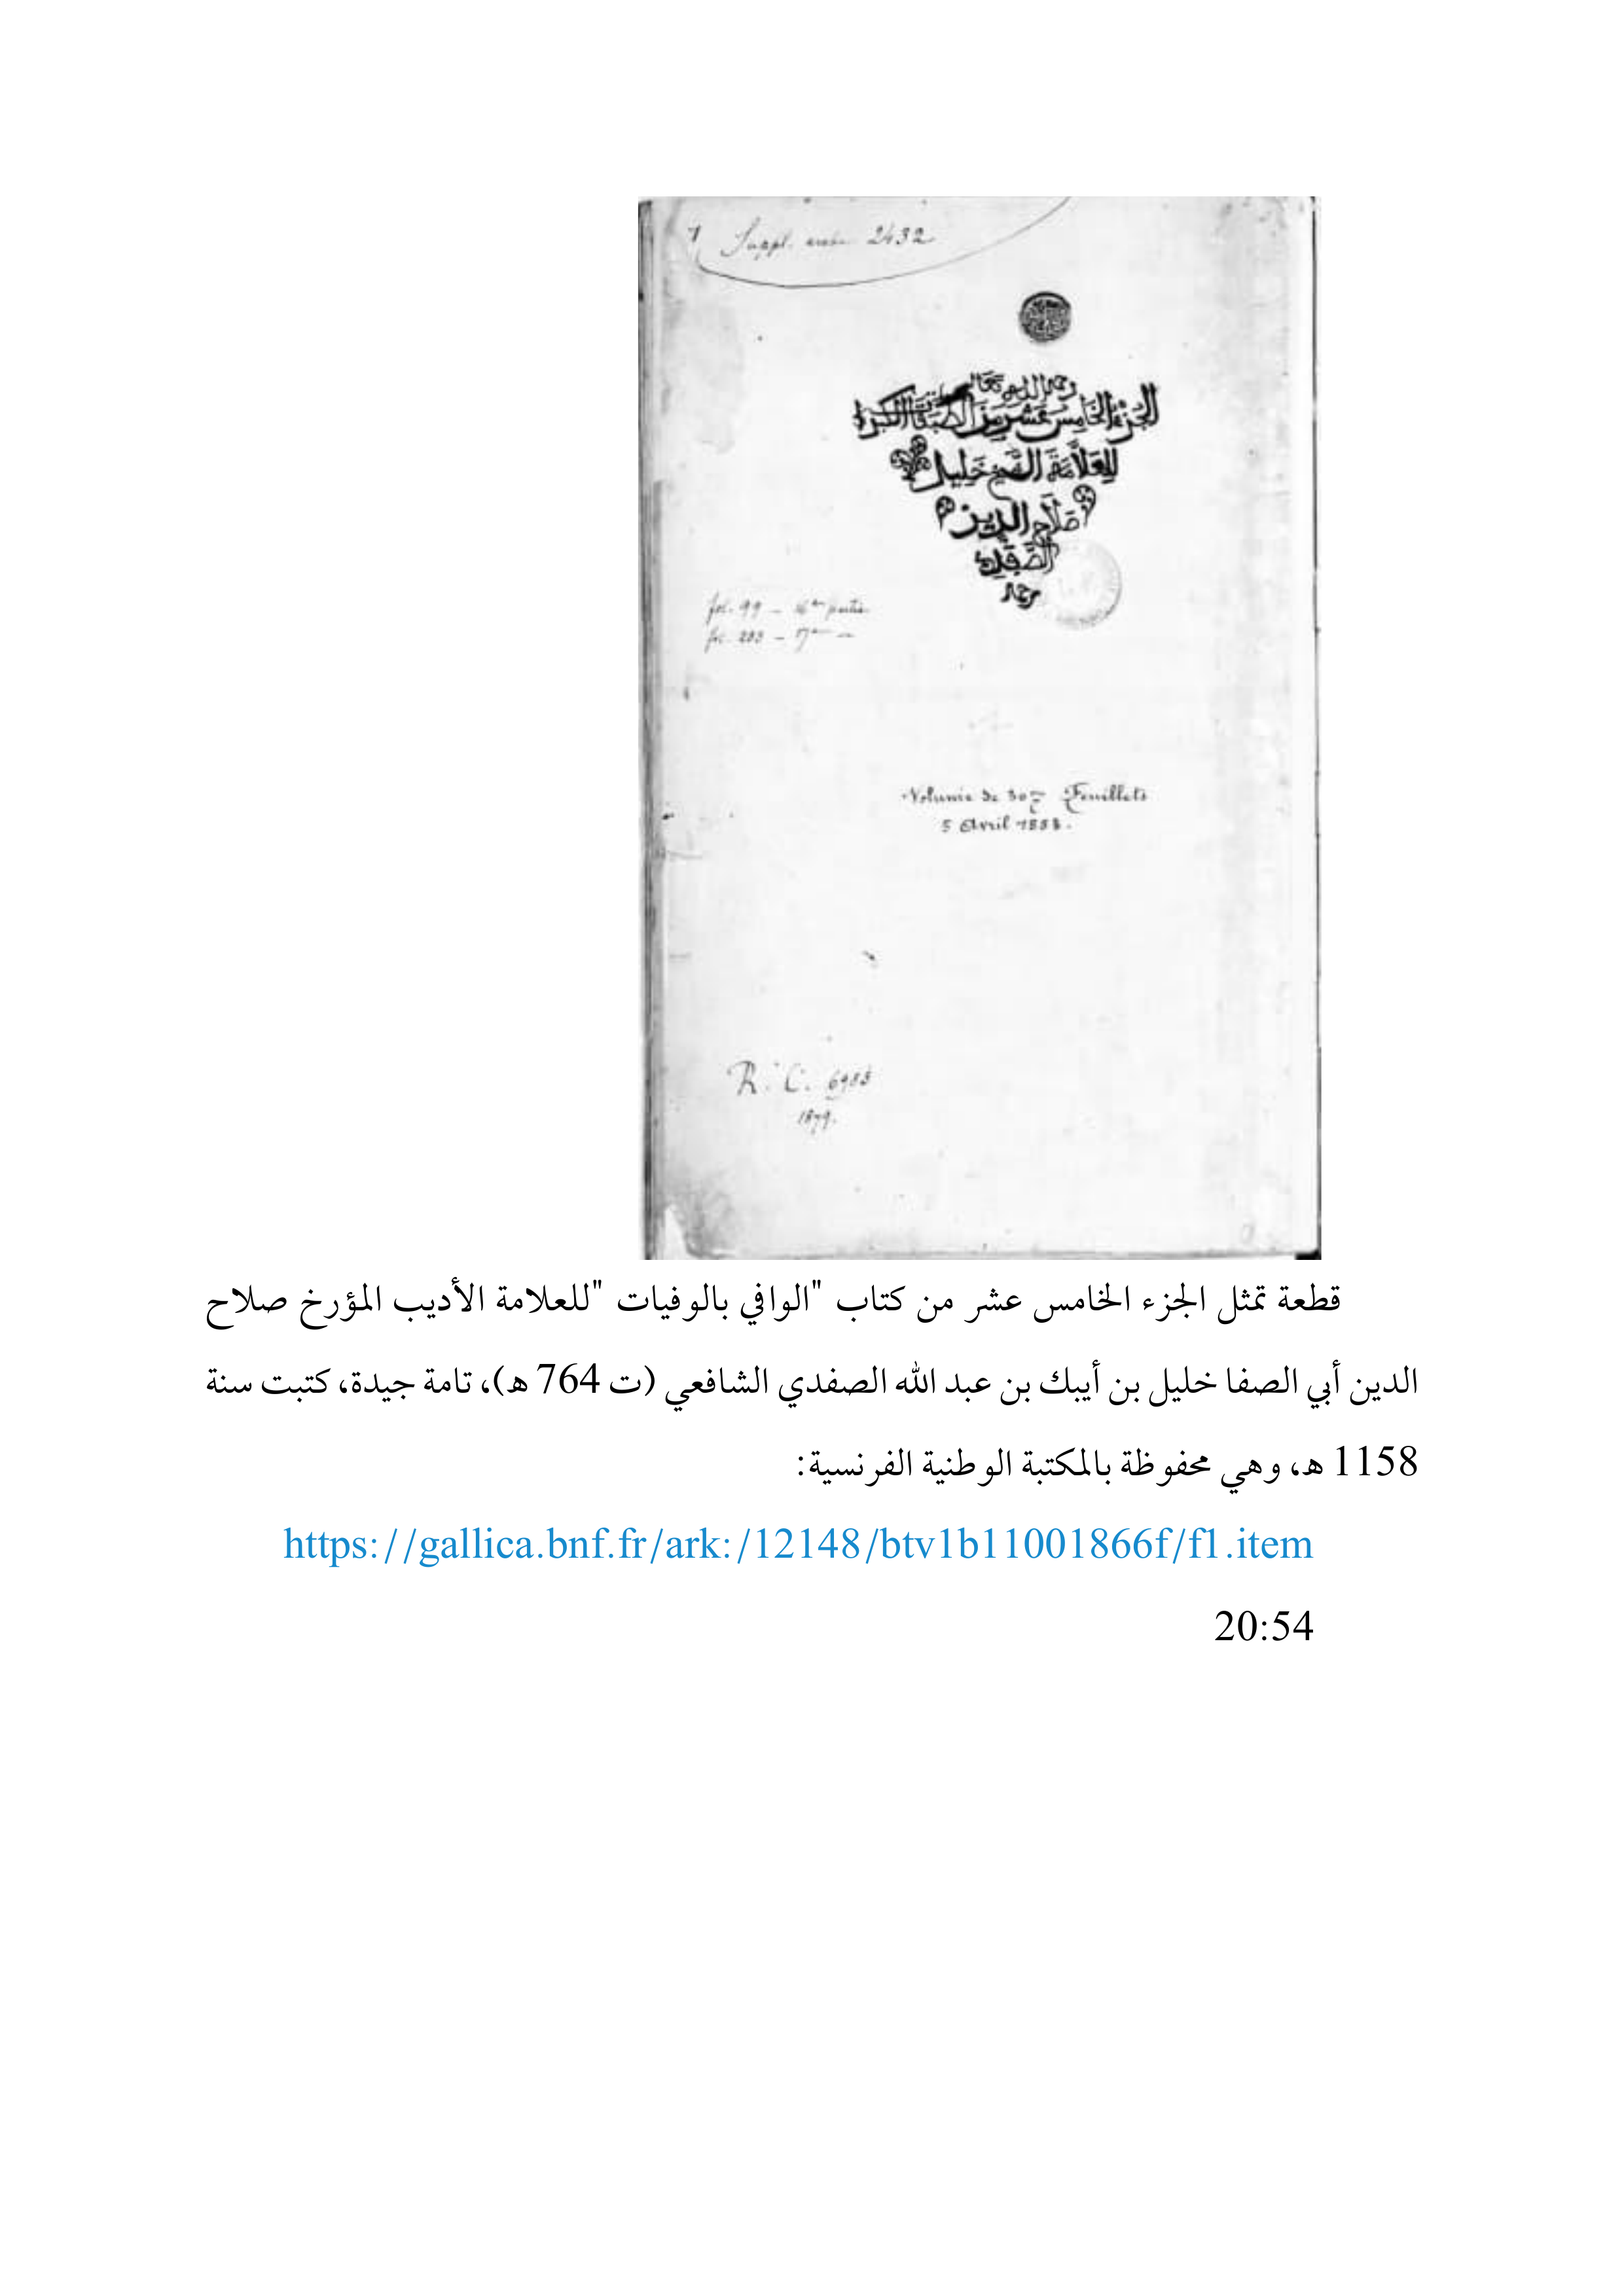 Suppl. arabe 2432
رحمه الله تعالى
الجزء الخامس عشر من الطبقات الكبرى
للعلامة الشيخ خليل
صلاح الدين
الصفدي
fol. 99 – 16
fol. 203 – 17
Volume de Feuillets
5 Avril 1883.
R. C.
1879.
قطعة تمثل الجزء الخامس عشر من كتاب "الوافي بالوفيات "للعلامة الأديب المؤرخ صلاح
الدين أبي الصفا خليل بن أيبك بن عبد الله الصفدي الشافعي (ت 764 ه)، تامة جيدة، كتبت سنة
1158 ه، وهي محفوظة بالمكتبة الوطنية الفرنسية:
https://gallica.bnf.fr/ark:/12148/btv1b11001866f/f1.item
20:54